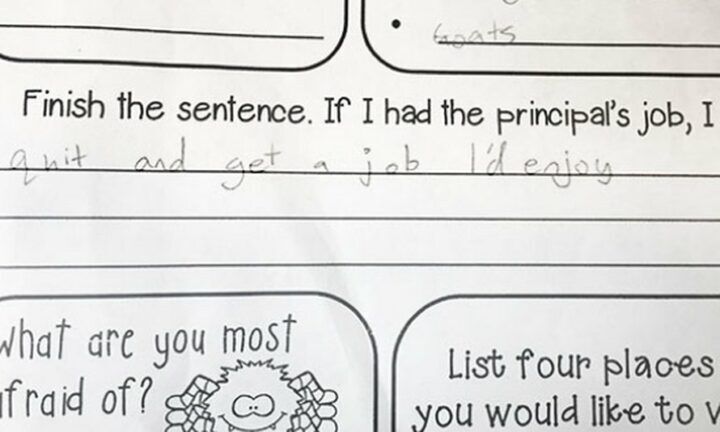 • Goats
Finish the sentence. If I had the principal's job, I
quit and get a job I'd enjoy
What are you most
afraid of?
List four places
you would like to v